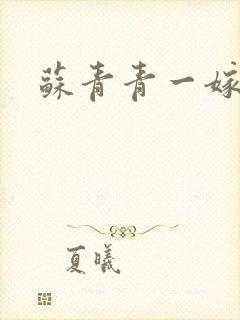 蘇青青一嫁
夏曦